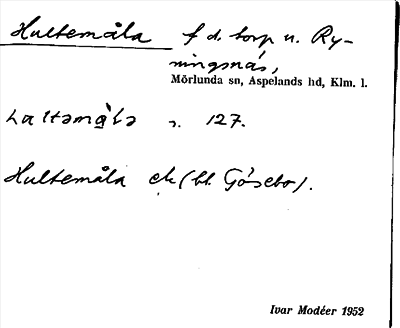 Hultemåla f d. torp u. Ry-
ningsnäs,
Mörlunda sn, Aspelands hd, Klm. l.
127.
Hultemåla ek (bl. Gösebo).
Ivar Modéer 1952